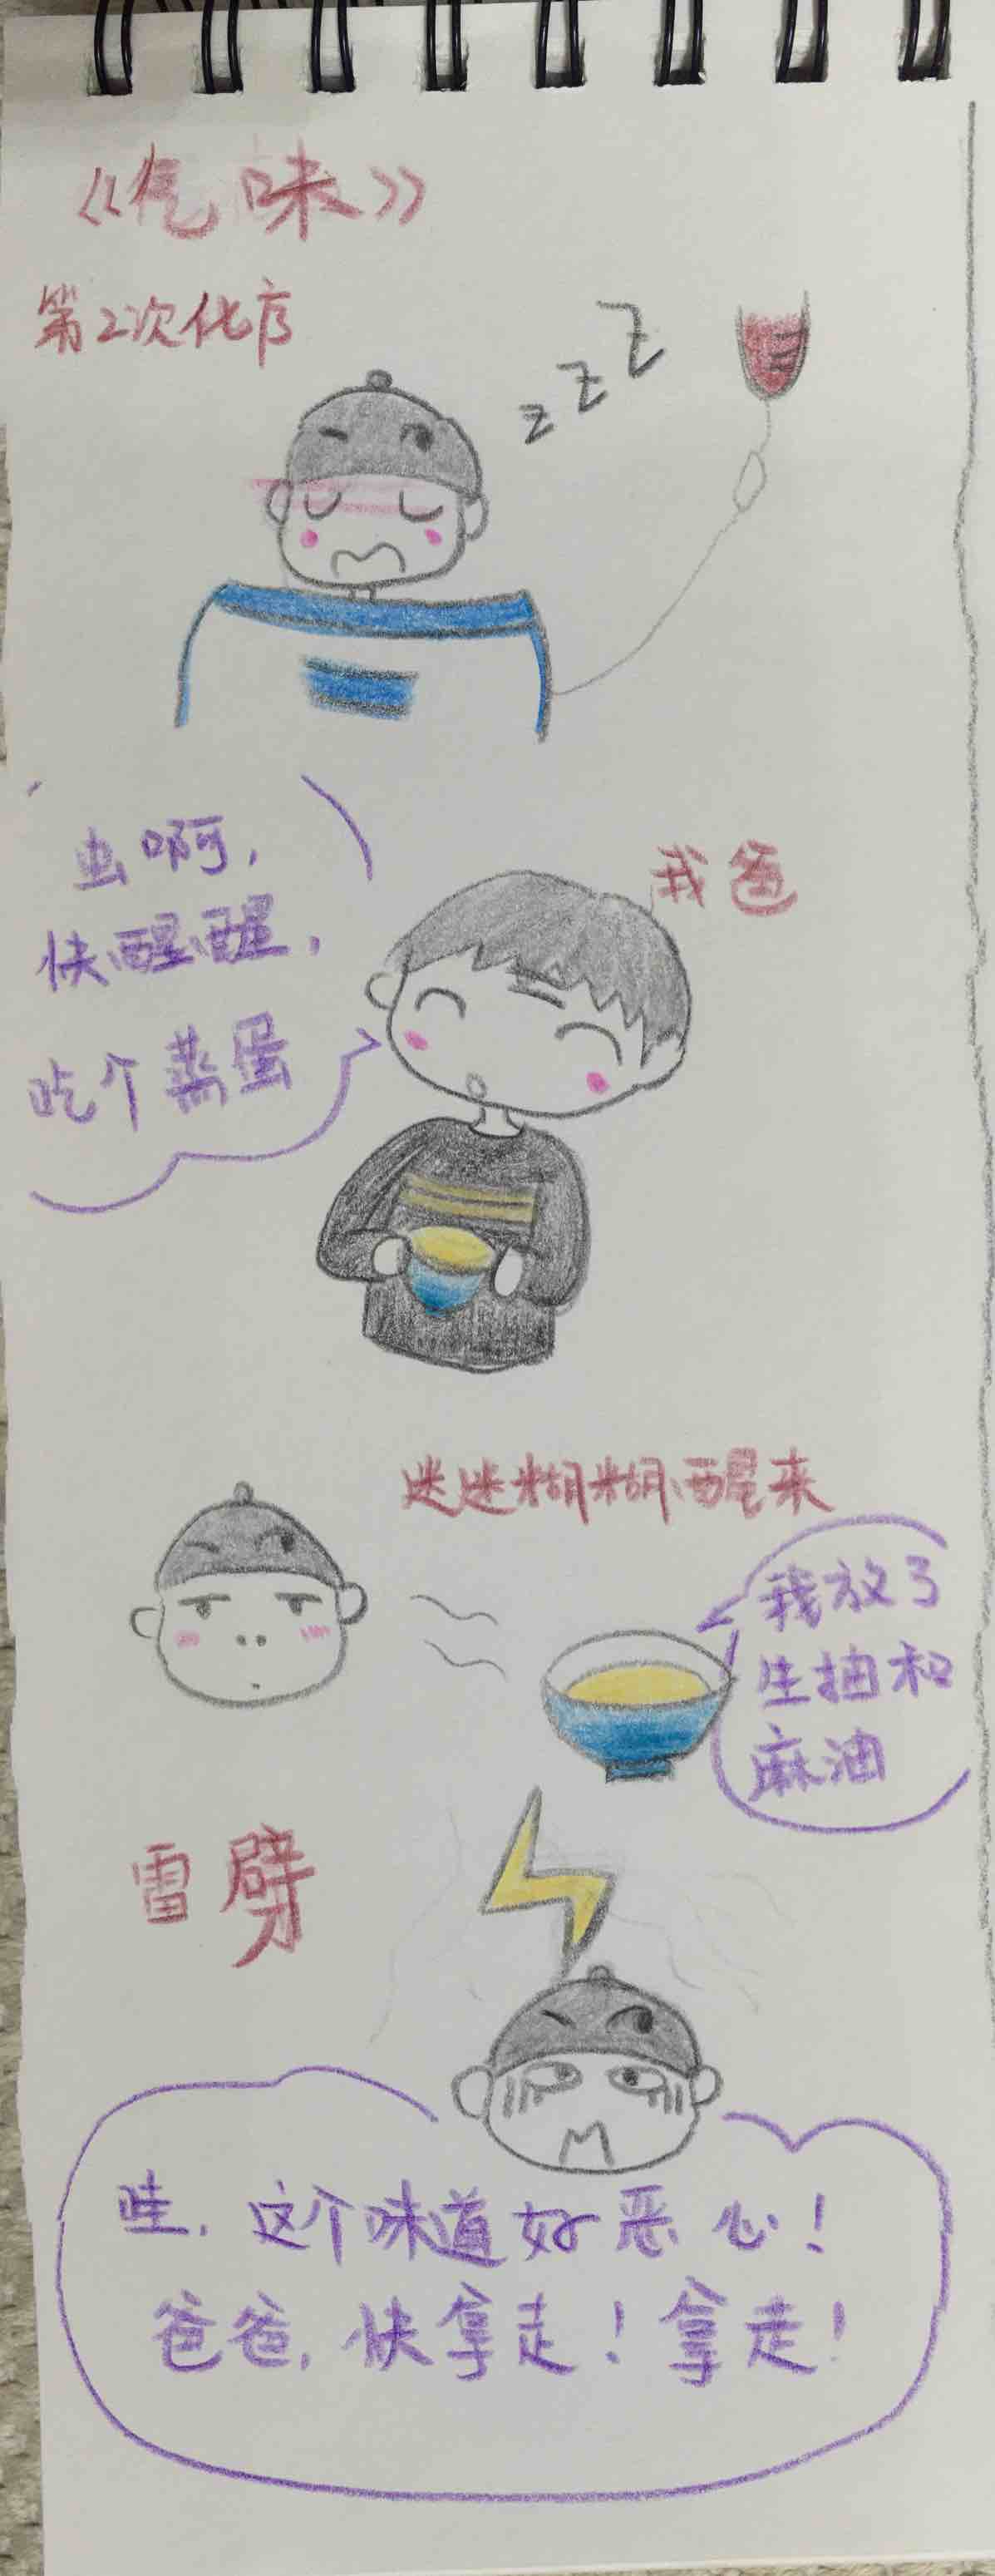 《气味》
第2次化疗
z z Z
虫啊,
快醒醒,
吃个蒸蛋
我爸
迷迷糊糊醒来
我放了
生抽和
麻油
雷劈
哇, 这个味道好恶心!
爸爸, 快拿走! 拿走!